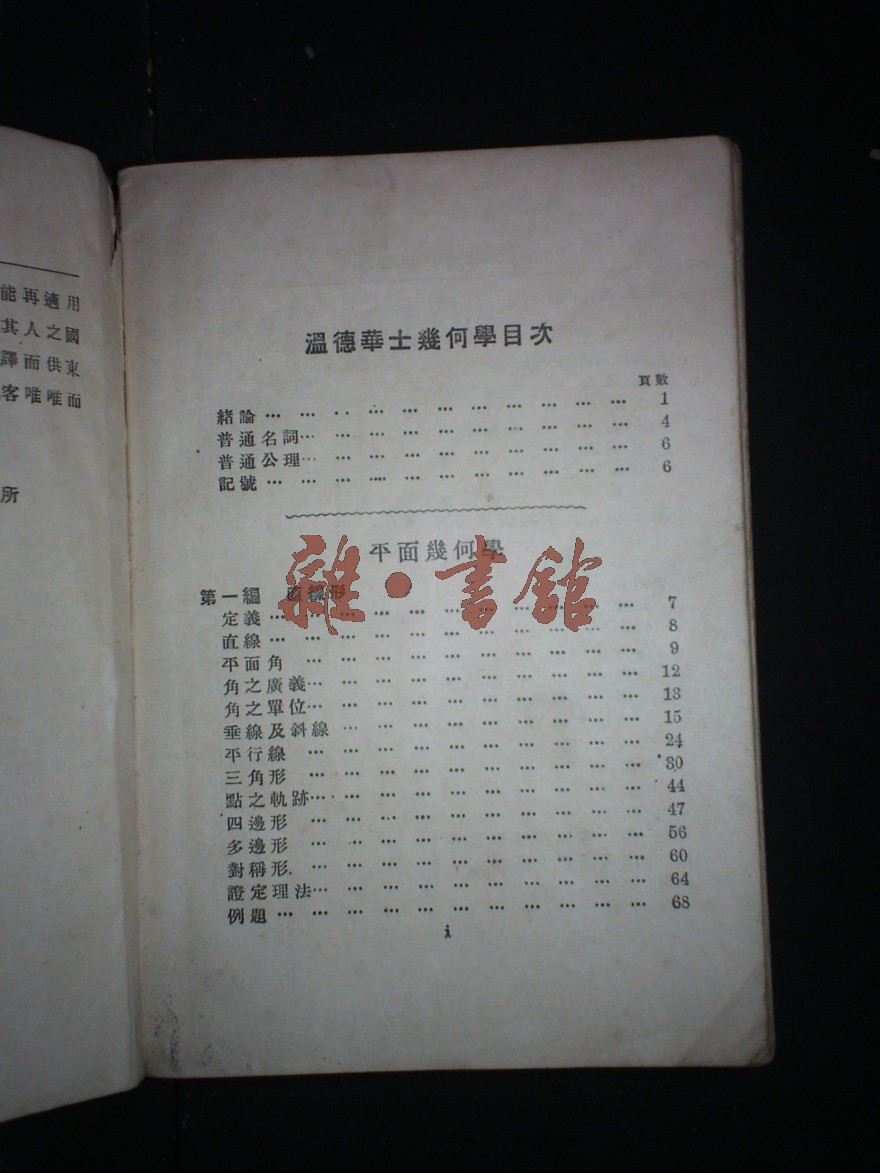 能再適用
其人之國
譯而供東
客唯唯而
所
溫德華士幾何學目次
頁數
緒論 … … … … … … … … … … … 1
普通名詞… … … … … … … … … … 4
普通公理… … … … … … … … … … 6
記號… … … … … … … … … … … 6
平面幾何學
雜·書館
第一編 直線形
定義… … … … … … … … … … … 7
直線… … … … … … … … … … … 8
平面角 … … … … … … … … … … 9
角之廣義… … … … … … … … … … 12
角之單位… … … … … … … … … … 13
垂線及斜線 … … … … … … … … … 15
平行線 … … … … … … … … … … 24
三角形 … … … … … … … … … … 30
點之軌跡… … … … … … … … … … 44
四邊形 … … … … … … … … … … 47
多邊形 … … … … … … … … … … 56
對稱形 … … … … … … … … … … 60
證定理法… … … … … … … … … … 64
例題 … … … … … … … … … … … 68
i